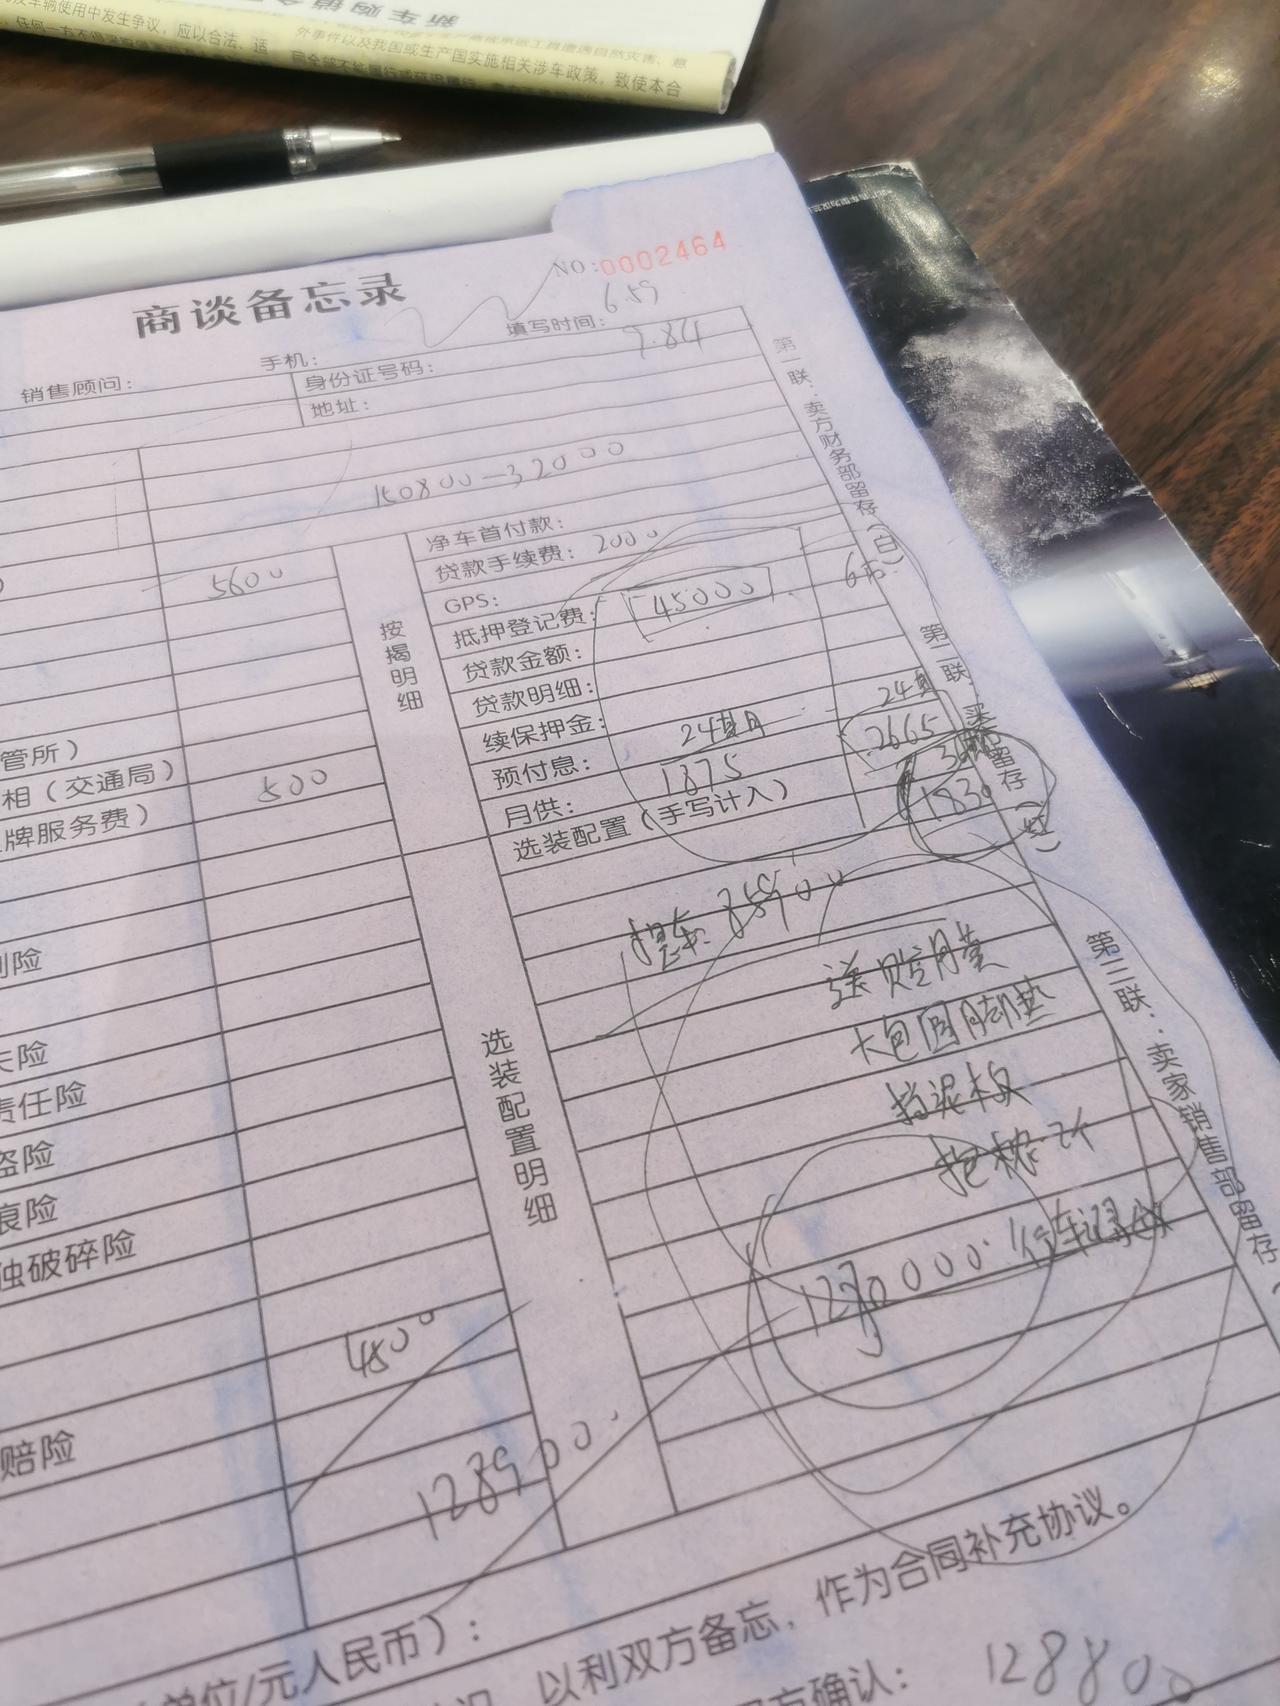 及车辆使用中发生争议，应以合法、适
外事件以及我国或生产国实施相关涉车政策，致使本合
NO:0002464
商谈备忘录
6.59
填写时间：
7.84
手机：
销售顾问：
身份证号码：
地址：
150800-32000
净车首付款：
贷款手续费：2000
GPS：
5600
抵押登记费：
45000
按揭明细
贷款金额：
贷款明细：
续保押金：
24
24
2665
预付息：
管所）
月供：
1875
1830
相（交通局）
500
选装配置（手写计入）
牌服务费）
35900
送贴膜
大包围脚垫
挡泥板
抱枕2个
行车记录仪
失险
责任险
盗险
痕险
独破碎险
选装配置明细
4500
赔险
128900
单位/元人民币）：
以利双方备忘，作为合同补充协议。
方确认：
128800
第一联：卖方财务部留存（白）
第二联：买
留存（红）
第三联：卖家销售部留存（